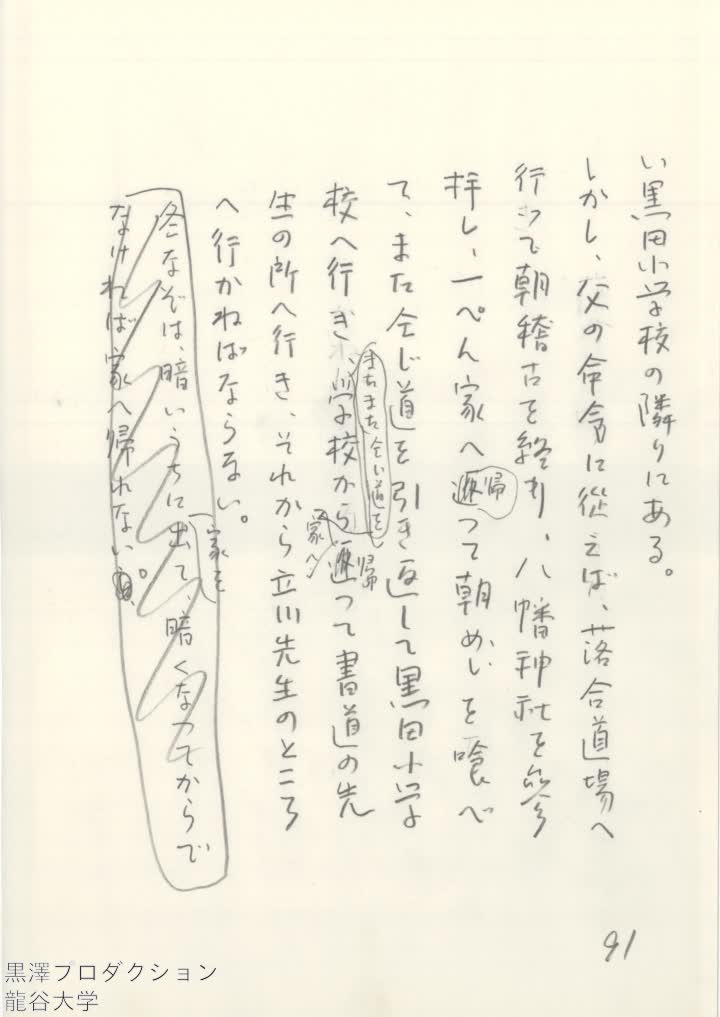 い黒田小学校の隣りにある。
しかし、父の命令に従えば、落合道場へ
行って朝稽古を終り、八幡神社を参
拝し、一ぺん家へ帰って朝めしを喰べ
て、また仝じ道を引き返して黒田小学
校へ行き、学校から家へ帰って書道の先
またまた仝い道を
生の所へ行き、それから立川先生のところ
へ行かねばならない。
冬なぞは、暗いうちに家を出て、暗くなってからで
なければ家へ帰れない。
91
黒澤プロダクション
龍谷大学